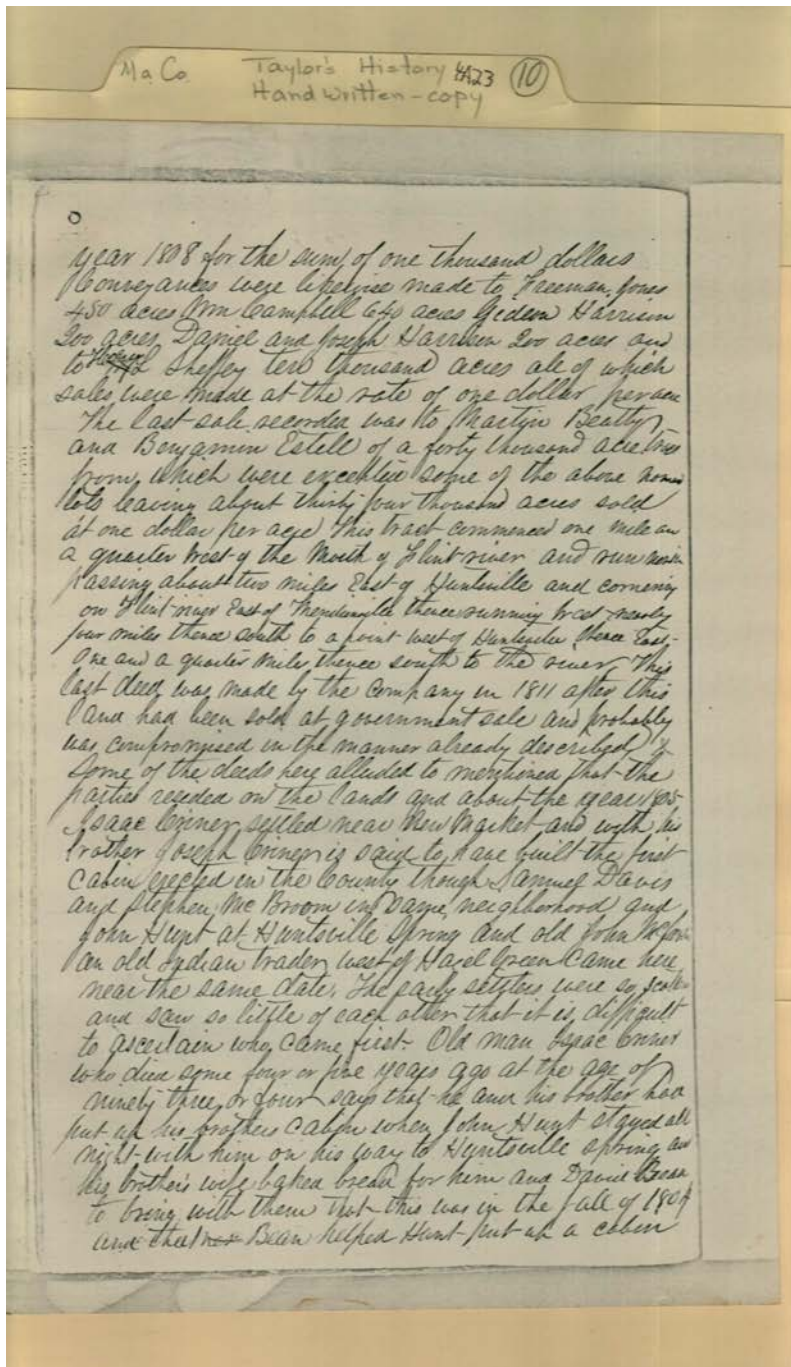 Ma. Co. Taylor's History 4A23 10
Handwritten - copy
year 1808 for the sum of one thousand dollars
Conveyances were likewise made to Freeman Jones
450 acres Wm Campbell 640 acres Gideon Harrison
200 acres Daniel and Joseph Harrison 200 acres and
to Sheffey ten thousand acres all of which
sales were made at the rate of one dollar per acre
The last sale recorded was to Martin Beatty
and Benjamin Estell of a forty thousand acre
from which were some of the above
lots leaving about thirty four thousand acres sold
at one dollar per acre This tract commenced one mile an
a quarter West of the Mouth of Flint river and run north
passing about two miles East of Huntsville and cornering
on Flint river East of thence running West nearly
four miles thence south to a point west of Huntsville thence East
One and a quarter miles thence south to the river. This
last deed was made by the company in 1811 after this
land had been sold at government sale and probably
was compromised in the manner already described
Some of the deeds here alluded to mentioned that the
parties resided on the lands and about the year
Isaac Criner settled near New Market and with his
brother Joseph Criner is said to have built the first
Cabin erected in the County though Samuel Davis
and Stephen McBroom in Same neighborhood and
John Hunt at Huntsville Spring and old John
an old Indian trader west of Hazel Green came here
near the same date. The early settlers were so
and saw so little of each other that it is difficult
to ascertain who came first- Old man Isaac Criner
who died some four or five years ago at the age of
ninety three or four says that he and his brother had
put up his brothers cabin when John Hunt stayed all
night with him on his way to Huntsville spring and
his brother's wife baked bread for him and David Bean
to bring with them That this was in the fall of 1804
and that Bean helped Hunt put up a cabin